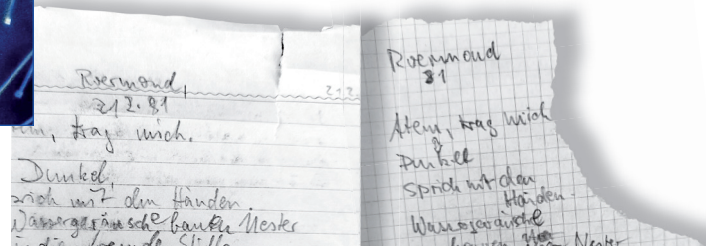 Roermond,
21.2.81
trag mich.
Dunkel,
sprich mit den Händen.
Wassergeräusche bauten Nester
in die Stille
Roermond
81
Atem, trag mich
Dunkel
sprich mit den
Händen.
Wassergeräusche
bauten Nester